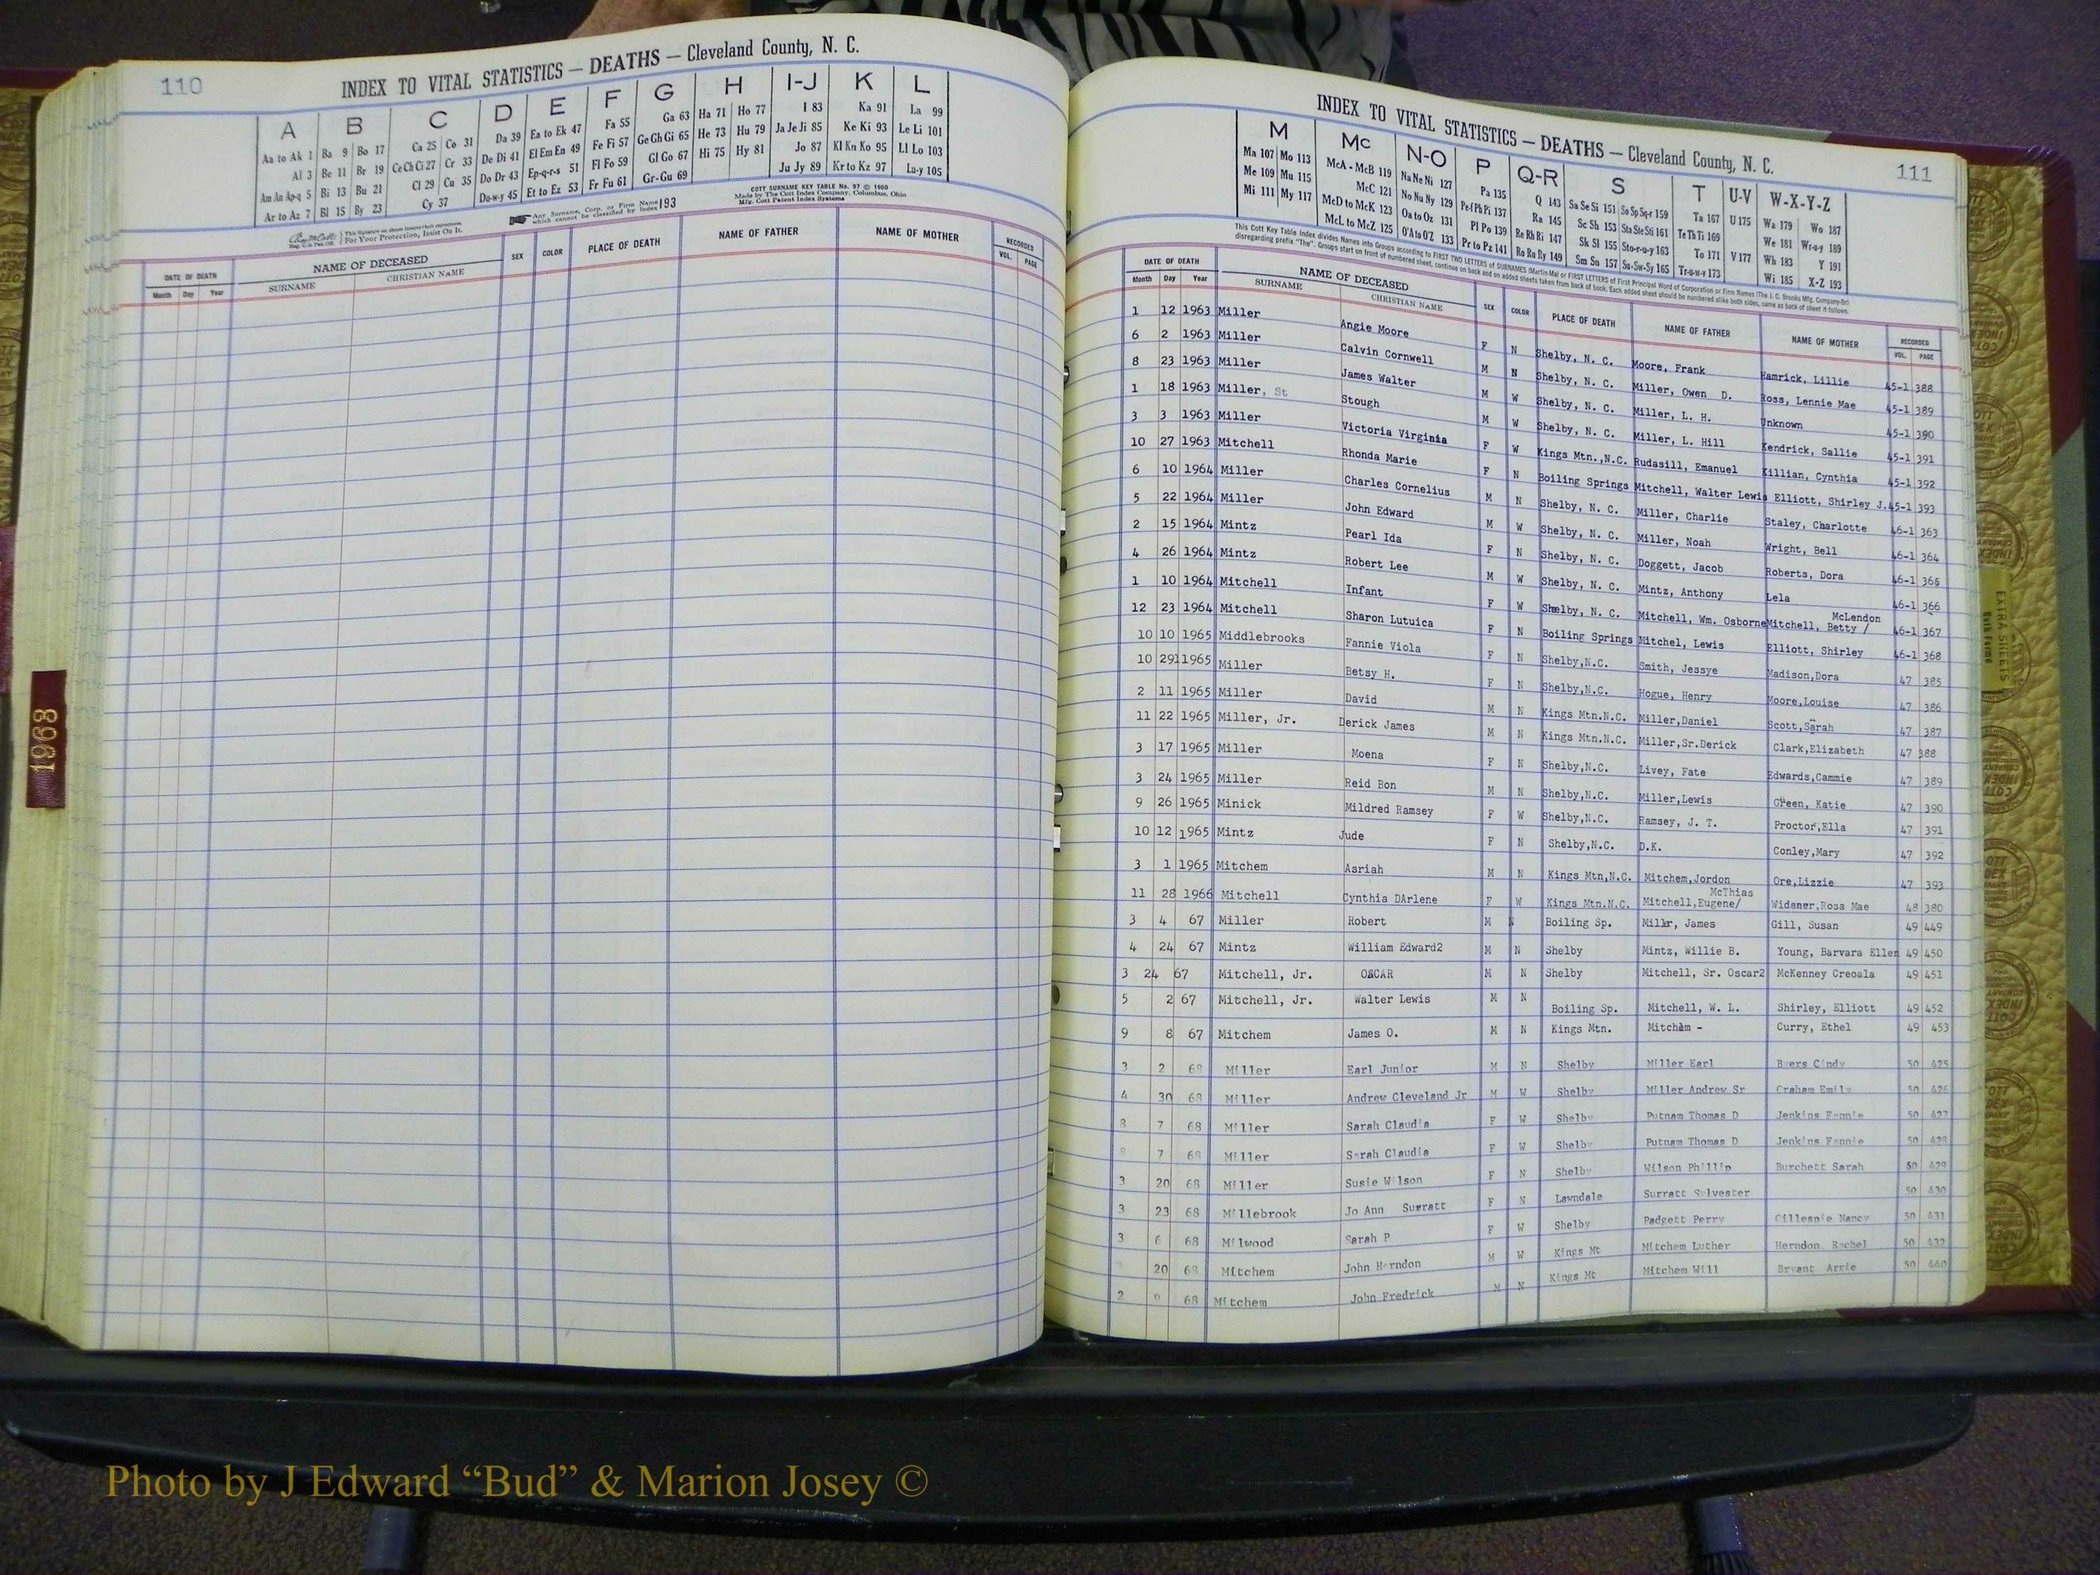 110
INDEX TO VITAL STATISTICS — DEATHS — Cleveland County, N. C.
A B C D E F G H I-J K L
Aa to Ak 1 Ba 9 Bo 17 Ca 25 Co 31 Da 39 Ea to Ek 47 Fa 55 Ga 63 Ha 71 Ho 77 I 83 Ka 91 La 99
Al 3 Be 11 Br 19 Ce Ch Ci 27 Cr 33 De Di 41 El Em En 49 Fe Fi 57 Ge Gh Gi 65 He 73 Hu 79 Ja Je Ji 85 Ke Ki 93 Le Li 101
Am An Ap-q 5 Bi 13 Bu 21 Cl 29 Cu 35 Do Dr 43 Ep-q-r-s 51 Fl Fo 59 Gl Go 67 Hi 75 Hy 81 Jo 87 Kl Kn Ko 95 Ll Lo 103
Ar to Az 7 Bl 15 By 23 Cy 37 Du-w-y 45 Et to Ez 53 Fr Fu 61 Gr-Gu 69 Ju Jy 89 Kr to Kz 97 Lu-y 105
Any Surname, Corp. or Firm Name which cannot be classified by Index 193
COTT SURNAME KEY TABLE No. 97 © 1960
Made by The Cott Index Company, Columbus, Ohio
Mfg. Cott Patent Index Systems
For Your Protection, Insist On It.
DATE OF DEATH NAME OF DECEASED SEX COLOR PLACE OF DEATH NAME OF FATHER NAME OF MOTHER RECORDED
Month Day Year SURNAME CHRISTIAN NAME VOL. PAGE
1968
INDEX TO VITAL STATISTICS — DEATHS — Cleveland County, N. C.
111
M Mc N-O P Q-R S T U-V W-X-Y-Z
Ma 107 Mo 113 McA - McB 119 Na Ne Ni 127 Pa 135 Q 143 Sa Se Si 151 So Sp Sq-r 159 Ta 167 U 175 Wa 179 Wo 187
Me 109 Mu 115 McC 121 No Nu Ny 129 Pe-f Ph Pi 137 Ra 145 Sc Sh 153 Sta Ste Sti 161 Te Th Ti 169 We 181 Wr-u-y 189
Mi 111 My 117 McD to McK 123 Oa to Oz 131 Pl Po 139 Re Rh Ri 147 Sk Sl 155 Sto-r-u-y 163 To 171 V 177 Wh 183 Y 191
McL to McZ 125 O'A to O'Z 133 Pr to Pz 141 Ro Ru Ry 149 Sm Sn 157 Su-Sw-Sy 165 Tr-u-w-y 173 Wi 185 X-Z 193
This Cott Key Table Index divides Names into Groups according to FIRST TWO LETTERS of SURNAMES (Martin-Ma) or FIRST LETTERS of First Principal Word of Corporation or Firm Names (The J. C. Brooks Mfg. Company-Br)
disregarding prefix "The". Groups start on front of numbered sheet, continue on back and on added sheets taken from back of book. Each added sheet should be numbered alike both sides, same as back of sheet it follows.
DATE OF DEATH NAME OF DECEASED SEX COLOR PLACE OF DEATH NAME OF FATHER NAME OF MOTHER RECORDED
Month Day Year SURNAME CHRISTIAN NAME VOL. PAGE
1 12 1963 Miller Angie Moore F N Shelby, N. C. Moore, Frank Hamrick, Lillie 45-1 388
6 2 1963 Miller Calvin Cornwell M N Shelby, N. C. Miller, Owen D. Ross, Lennie Mae 45-1 389
8 23 1963 Miller James Walter M W Shelby, N. C. Miller, L. H. Unknown 45-1 390
1 18 1963 Miller, St Stough M W Shelby, N. C. Miller, L. Hill Kendrick, Sallie 45-1 391
3 3 1963 Miller Victoria Virginia F W Kings Mtn.,N.C. Rudasill, Emanuel Killian, Cynthia 45-1 392
10 27 1963 Mitchell Rhonda Marie F N Boiling Springs Mitchell, Walter Lewis Elliott, Shirley J. 45-1 393
6 10 1964 Miller Charles Cornelius M N Shelby, N. C. Miller, Charlie Staley, Charlotte 46-1 363
5 22 1964 Miller John Edward M W Shelby, N. C. Miller, Noah Wright, Bell 46-1 364
2 15 1964 Mintz Pearl Ida F N Shelby, N. C. Doggett, Jacob Roberts, Dora 46-1 365
4 26 1964 Mintz Robert Lee M W Shelby, N. C. Mintz, Anthony Lela 46-1 366
1 10 1964 Mitchell Infant F W Shelby, N. C. Mitchell, Wm. Osborne Mitchell, Betty / McLendon 46-1 367
12 23 1964 Mitchell Sharon Lutuica F N Boiling Springs Mitchel, Lewis Elliott, Shirley 46-1 368
10 10 1965 Middlebrooks Fannie Viola F N Shelby,N.C. Smith, Jessye Madison,Dora 47 385
10 29 1965 Miller Betsy H. F N Shelby,N.C. Hogue, Henry Moore,Louise 47 386
2 11 1965 Miller David M N Kings Mtn.N.C. Miller,Daniel Scott,Sarah 47 387
11 22 1965 Miller, Jr. Derick James M N Kings Mtn.N.C. Miller,Sr.Derick Clark,Elizabeth 47 388
3 17 1965 Miller Moena F N Shelby,N.C. Livey, Fate Edwards,Cammie 47 389
3 24 1965 Miller Reid Bon M N Shelby,N.C. Miller,Lewis Green, Katie 47 390
9 26 1965 Minick Mildred Ramsey F W Shelby,N.C. Ramsey, J. T. Proctor,Ella 47 391
10 12 1965 Mintz Jude F N Shelby,N.C. D.K. Conley,Mary 47 392
3 1 1965 Mitchem Asriah M N Kings Mtn,N.C. Mitchem,Jordon Ore,Lizzie 47 393
11 28 1966 Mitchell Cynthia DArlene F W Kings Mtn.N.C. Mitchell,Eugene/ McThias Widener,Rosa Mae 48 380
3 4 67 Miller Robert M N Boiling Sp. Miller, James Gill, Susan 49 449
4 24 67 Mintz William Edward2 M N Shelby Mintz, Willie B. Young, Barvara Ellen 49 450
3 24 67 Mitchell, Jr. OSCAR M N Shelby Mitchell, Sr. Oscar2 McKenney Creoala 49 451
5 2 67 Mitchell, Jr. Walter Lewis M N Boiling Sp. Mitchell, W. L. Shirley, Elliott 49 452
9 8 67 Mitchem James O. M N Kings Mtn. Mitchem - Curry, Ethel 49 453
3 2 68 Miller Earl Junior M N Shelby Miller Earl Byers Cindy 50 425
4 30 68 Miller Andrew Cleveland Jr M W Shelby Miller Andrew Sr Graham Emily 50 426
8 7 68 Miller Sarah Claudia F W Shelby Putnam Thomas D Jenkins Fannie 50 427
7 68 Miller Sarah Claudia F W Shelby Putnam Thomas D Jenkins Fannie 50 428
3 20 68 Miller Susie Wilson F N Shelby Wilson Phillip Burchett Sarah 50 429
3 23 68 Millebrook Jo Ann Surratt F N Lawndale Surratt Sylvester 50 430
3 6 68 Milwood Sarah P F W Shelby Padgett Perry Gillespie Nancy 50 431
20 68 Mitchem John Herndon M W Kings Mt Mitchem Luther Herndon Rachel 50 432
2 9 68 Mitchem John Fredrick M N Kings Mt Mitchem Will Bryant Arrie 50 440
EXTRA SHEETS
Photo by J Edward “Bud” & Marion Josey ©